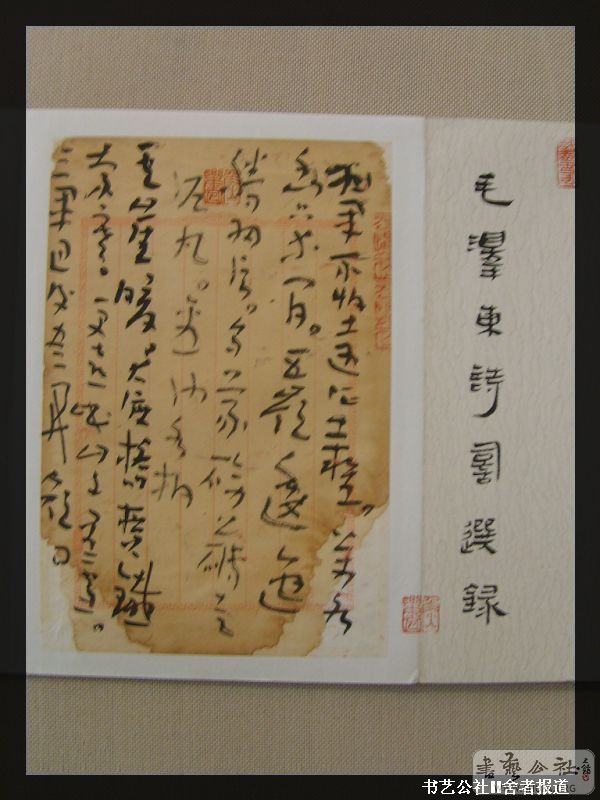 毛澤東詩詞選録
紅軍不怕遠征難。萬水
千山只等閒。五嶺逶迤
騰細浪。烏蒙磅礴走
泥丸。金沙水拍
雲崖暖。大渡橋橫鐵
索寒。更喜岷山千里雪。
三軍過後盡開顏
書藝公社
书艺公社II舍者报道